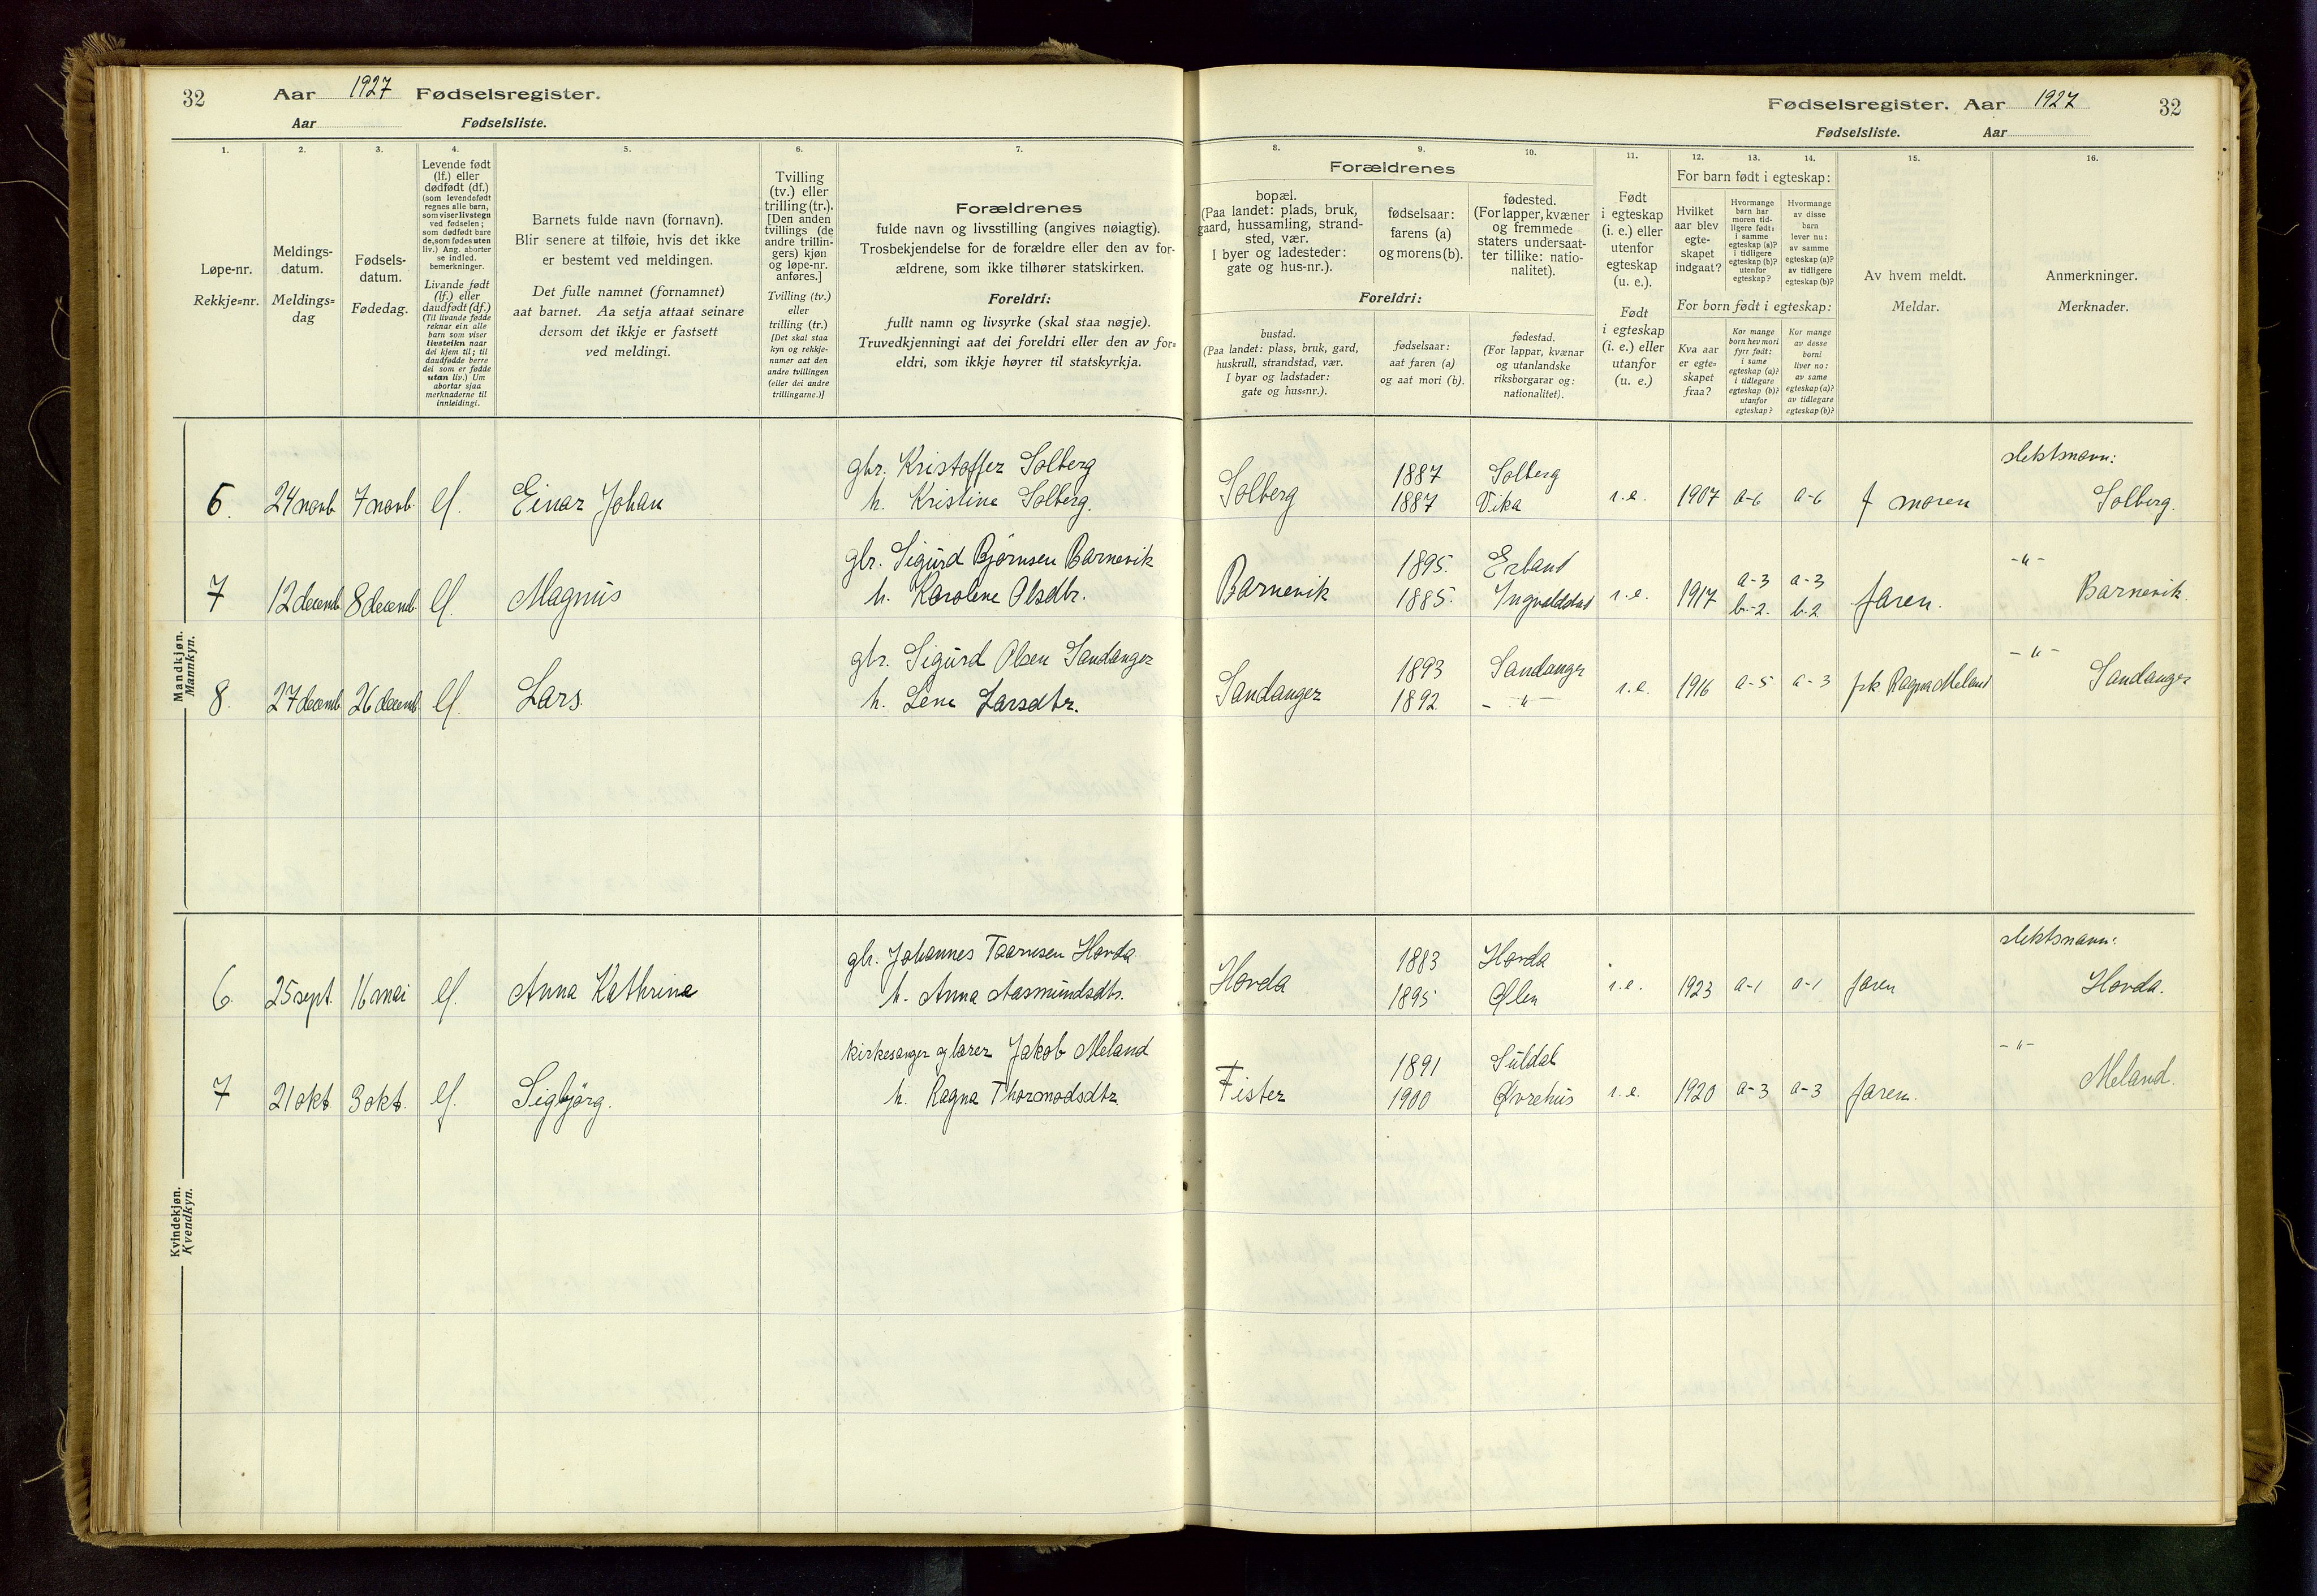 32 Aar 1927 Fødselsregister.
Aar Fødselsliste.
Fødselsregister. Aar 1927 32
Fødselsliste. Aar
1. 2. 3. 4. 5. 6. 7.
Løpe-nr.
Rekkje=nr.
Meldings-
datum.
Meldings=
dag
Fødsels-
datum.
Fødedag.
Levende født
(lf.) eller
dødfødt (df.)
(som levendefødt
regnes alle barn,
som viser livstegn
ved fødselen;
som dødfødt bare
de, som fødes uten
liv.) Ang. aborter
se indled.
bemerkninger.
Livande født
(lf.) eller
daudfødt (df.)
(Til livande fødde
reknar ein alle
born som viser
livsteikn naar
dei kjem til; til
daudfødde berre
dei som er fødde
utan liv.) Um
abortar sjaa
merknaderne til
innleidingi.
Barnets fulde navn (fornavn).
Blir senere at tilføie, hvis det ikke
er bestemt ved meldingen.
Det fulle namnet (fornamnet)
aat barnet. Aa setja attaat seinare
dersom det ikkje er fastsett
ved meldingi.
Tvilling
(tv.) eller
trilling (tr.).
[Den anden
tvillings (de
andre trillin-
gers) kjøn
og løpe-nr.
anføres.]
Tvilling (tv.)
eller
trilling (tr.)
[Det skal staa
kyn og rekkje-
numer aat den
andre tvillingen
(eller dei andre
trillingarne.)]
Forældrenes
fulde navn og livsstilling (angives nøiagtig).
Trosbekjendelse for de forældre eller den av for-
ældrene, som ikke tilhører statskirken.
Foreldri:
fullt namn og livsyrke (skal staa nøgje).
Truvedkjenningi aat dei foreldri eller den av for=
eldri, som ikkje høyrer til statskyrkja.
8. 9. 10. 11. 12. 13. 14. 15. 16.
Forældrenes
bopæl.
(Paa landet: plads, bruk,
gaard, hussamling, strand-
sted, vær.
I byer og ladesteder:
gate og hus-nr.).
fødselsaar:
farens (a)
og morens (b).
fødested.
(For lapper, kvæner
og fremmede
staters undersaat-
ter tillike: natio-
nalitet).
Foreldri:
bustad.
(Paa landet: plass, bruk, gard,
huskrull, strandstad, vær.
I byar og ladstader:
gate og hus=nr.).
fødselsaar:
aat faren (a)
og aat mori (b).
fødestad.
(For lappar, kvænar
og utanlandske
riksborgarar og:
nationalitet).
Født
i egteskap
(i. e.) eller
utenfor
egteskap
(u. e.).
Født
i egteskap
(i. e.) eller
utanfor
(u. e.)
For barn født i egteskap:
Hvilket
aar blev
egte-
skapet
indgaat?
Hvormange
barn har
moren tid-
ligere født:
i samme
egteskap (a)?
i tidligere
egteskap (b)?
utenfor
egteskap?
Hvormange
av disse
barn
lever nu:
av samme
egteskap (a)?
av tidligere
egteskap (b)?
For born født i egteskap:
Kva aar
er egte=
skapet
fraa?
Kor mange
born hev mori
fyrr født:
i same
egteskap (a)?
i tidlegare
egteskap (b)?
utanfor
egteskap?
Kor mange
av desse
borni
liver no:
av same
egteskap (a)?
av tidlegare
egteskap (b)?
Av hvem meldt.
Meldar.
Anmerkninger.
Merknader.
Mandkjøn.
Mannkyn.
gbr. Kristoffer Solberg 1887 Solberg slektsnavn:
6. 24 novb. 7 novb. lf. Einar Johan h. Kristine Solberg. Solberg 1887 Vika i.e. 1907 a-6 a-6 moren Solberg.
gbr. Sigurd Bjørnsen Barnevik 1895. Erland a-3 a-3 -"-
7 12 decemb 8 decemb lf. Magnus h. Karolene Olsdtr. Barnevik 1885. Ingvaldstad i.e. 1917 b-2. b-2 faren. Barnevik.
gbr. Sigurd Olsen Sandanger 1893 Sandanger -"-
8. 27 decemb 26 decemb lf. Lars. h. Lene Larsdtr. Sandanger 1892. -"- i.e. 1916 a-5 a-3 frk Ragna Meland Sandanger
Kvindekjøn.
Kvendkyn.
gbr. Johannes Taarnesen Hovda 1883 Hovda slektsnavn:
6. 25 sept. 16 mai lf. Anna Kathrine h. Anna Aasmundsdtr. Hovda 1895 Ølen i.e. 1923 a-1 a-1 faren Hovda.
kirkesanger og lærer Jakob Meland 1891 Suldal -"-
7 21 okt. 3 okt. lf. Sigbjörg. h. Ragna Thormodsdtr. Fister 1900 Øvrehus i.e. 1920 a-3 a-3 faren. Meland.